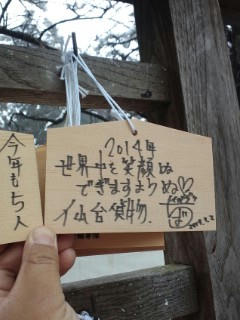 2014年
世界中を笑顔にぬ
できますようぬ♡
仙台貨物.
今年もち人